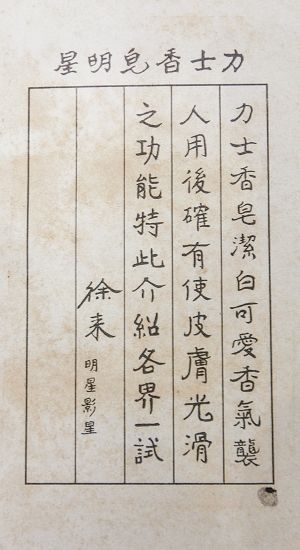 力士香皂明星
力士香皂潔白可愛香氣襲
人用後確有使皮膚光滑
之功能特此介紹各界一試
徐来
明星影星